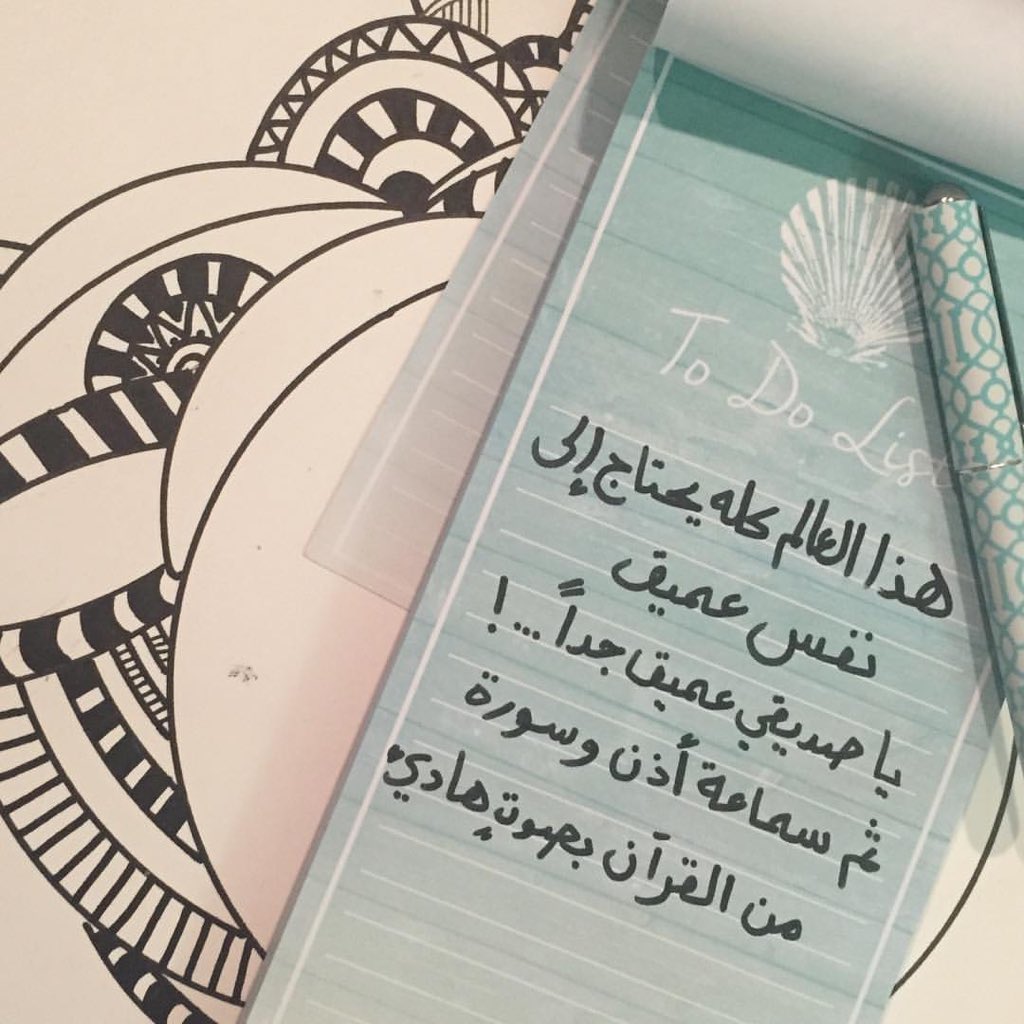 To Do List
هذا العالم كله يحتاج إلى
نفس عميق
يا صديقي عميقا جداً ... !
ثم سماعة أذن وسورة
من القرآن بصوتٍ هادئ